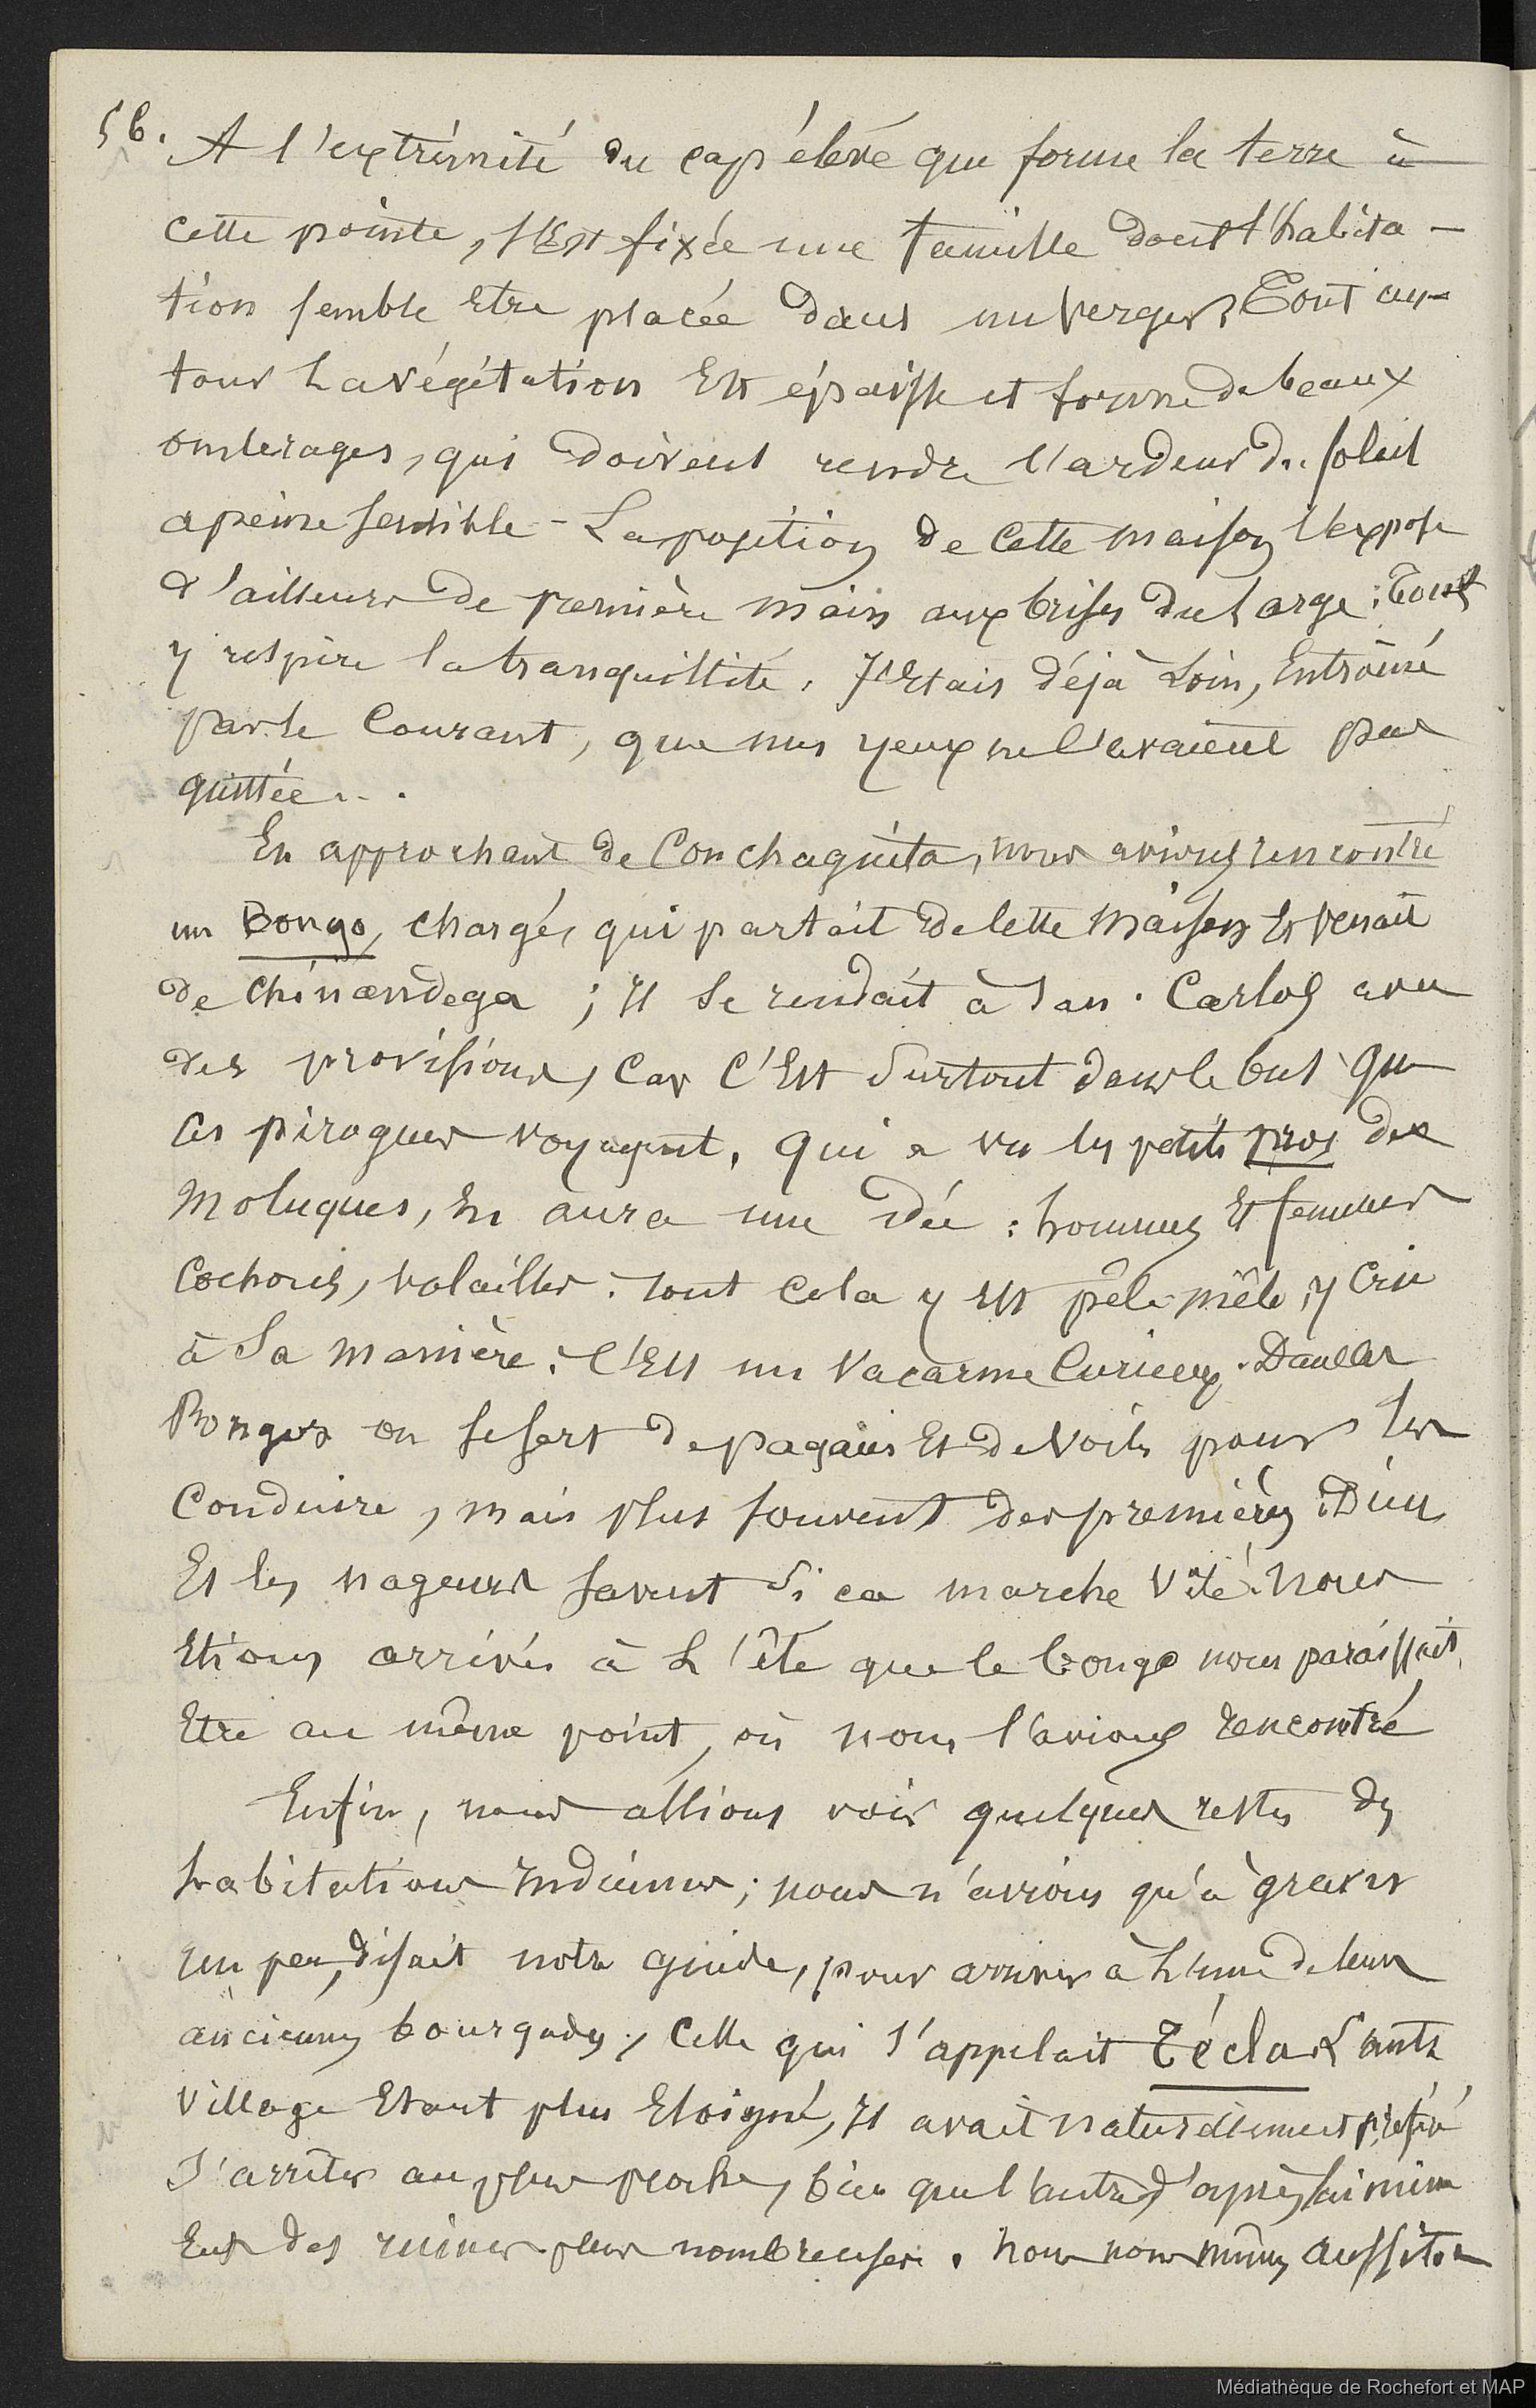 56.
A l'extrémité du cap élevé que forme la terre à
cette pointe, s'est fixée une famille dont l'habita-
tion semble etre placée dans un verger, Tout au-
tour la végétation Est épaisse et forme de beaux
ombrages, qui doivent rendre l'ardeur du soleil
apeine sensible - La position de cette maison l'expose
d'ailleurs de première main aux brises du large: Tout
y respire la tranquillité. J'etais déjà loin, Entraîné
par le Courant, que mes yeux ne l'avaient pas
quittée...
En approchant de Conchaguita, nous avions rencontré
un Bongo, chargé, qui partait de cette maison Et venait
de Chinandega ; Il se rendait à San. Carlos avec
des provisions, Car C'Est surtout dans le but que
ces pirogues voyagent. Qui a vu les petits pros des
Moluques, En aura une idée : hommes Et femmes
Cochons, volailles. tout cela y est pêle-mêle, y crie
à sa manière. C'Est un vacarme Curieux. Dans les
Bongos on se sert de pagaies Et de Voiles pour les
Conduire, mais plus souvent des premières. Dieu
Et les nageurs savent si ca marche vite. Nous
Etions arrivés à L'île que le bongo nous paraissait
Etre au même point, où nous l'avions rencontré
Enfin, nous allions voir quelques restes des
habitations Indiennes; nous n'avions qu'à gravir
un peu, disait notre guide, pour arriver à L'une de leurs
anciennes bourgades, Celle qui s'appelait Técla. L'autre
Village Etant plus Eloigné, Il avait naturellement préféré
s'arrêter au plus proche, bien que l'autre, d'après lui même
Eut des ruines plus nombreuses. Nous nous mîmes aussitôt
Médiathèque de Rochefort et MAP